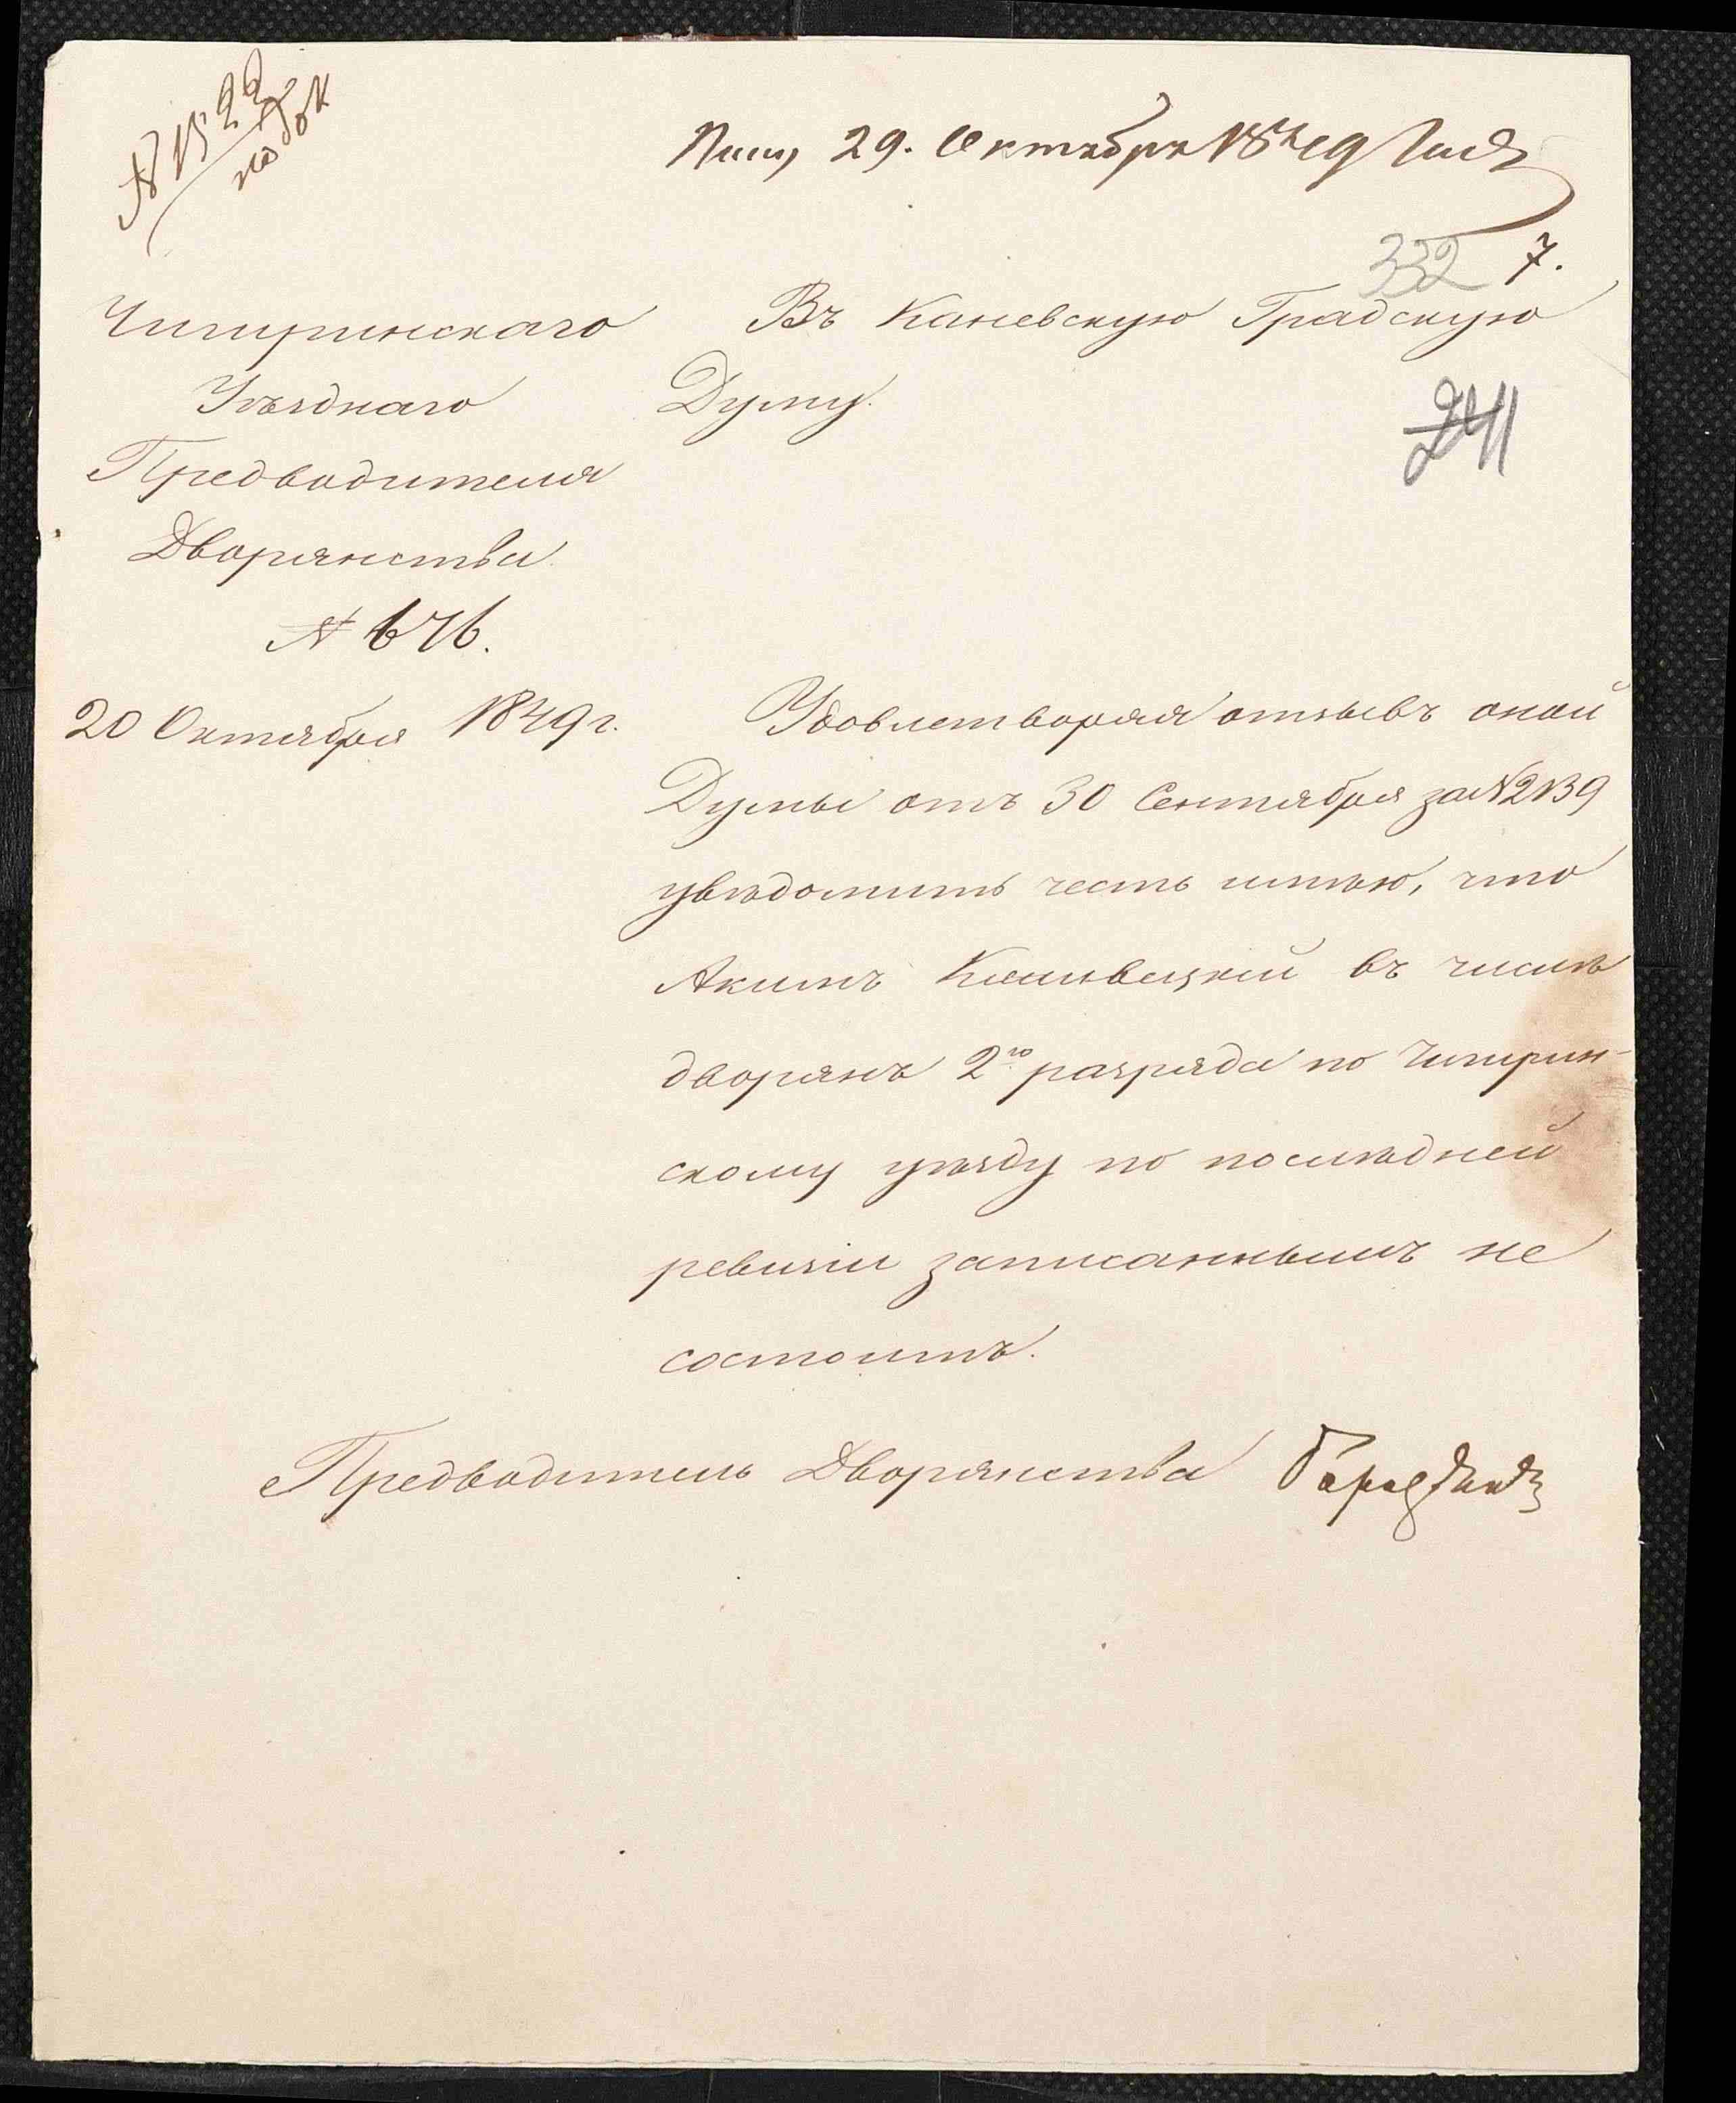 № 1522
по док
29. Октября 1849 Года
332 7.
Чигиринскаго
Уѣзднаго
Предводителя
Дворянства.
№ 676.
20 Октября 1849 г.
Въ Каневскую Градскую
Думу.
241
Удовлетворяя отзывъ оной
Думы отъ 30 Сентября за № 2139
увѣдомить честь имѣю, что
Акимъ въ числѣ
дворянъ 2го разряда по Чигирин-
скому уѣзду по послѣдней
ревизіи записаннымъ не
состоитъ.
Предводитель Дворянства